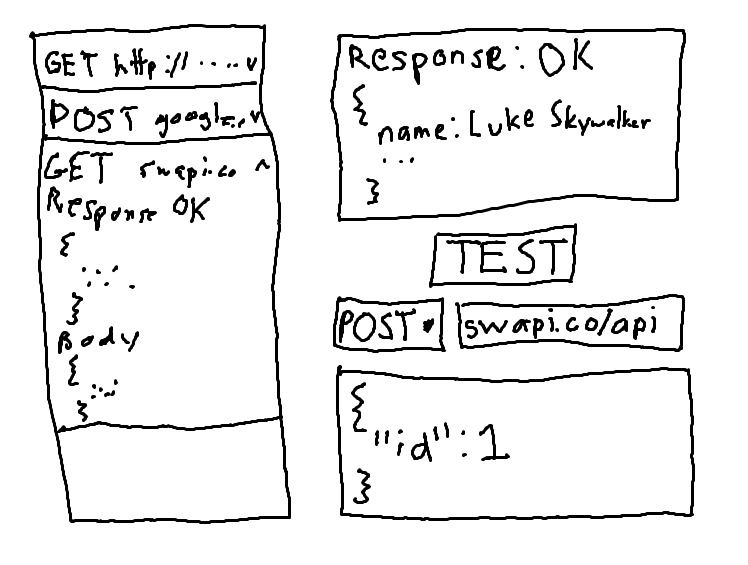 GET http://.....v
POST google...v
GET swapi.co ^
Response OK
{
.....
}
Body
{
.....
}
Response: OK
{
name: Luke Skywalker
...
}
TEST
POST
swapi.co/api
{
"id": 1
}